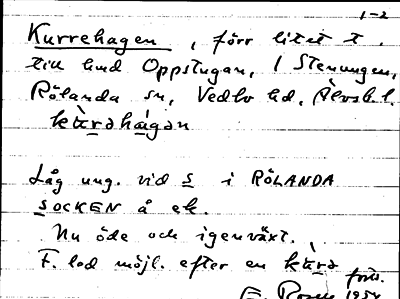 1-2
Kurrehagen, förr litet t.
till und Oppstugan, 1 Stenungen,
Rölanda sn, Vedbo hd, Älvsb. l.
kùrəhágan
Låg ung. vid s i RÖLANDA
SOCKEN å ek.
Nu öde och igenväxt.
F. led möjl. efter en kùrə
1954